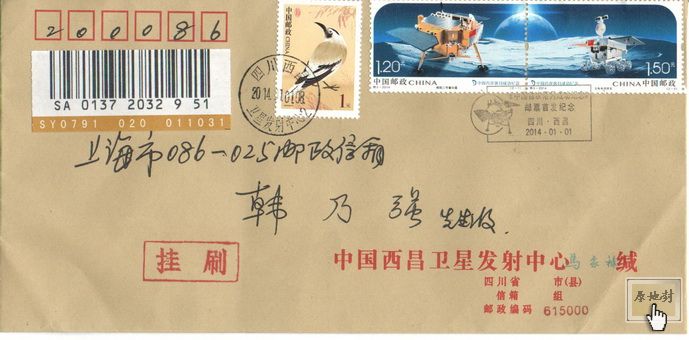 200086
SA 0137 2032 9 51
SY0791 020 011031
中国邮政 CHINA
1元
四川西昌
2014.01.01.08
卫星发射中心
1.20元
中国邮政 CHINA
1.50元
中国邮政 CHINA
邮票首发纪念
四川·西昌
2014-01-01
上海市086-025邮政信箱
韩乃强 先生收
挂刷
中国西昌卫星发射中心 缄
四川省 市(县)
信箱 组
邮政编码 615000
原地封